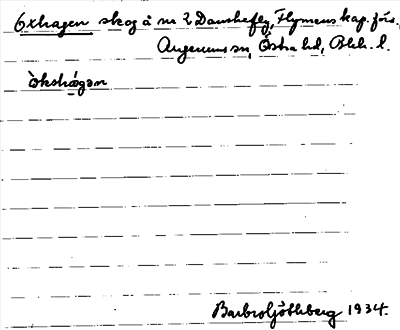 Oxhagen skog å nr 2 Danskefly, Flymens kap.förs.,
Augerums sn, Östra hd, Blek. l.
ökshågən
Barbro Ljöthberg 1934.